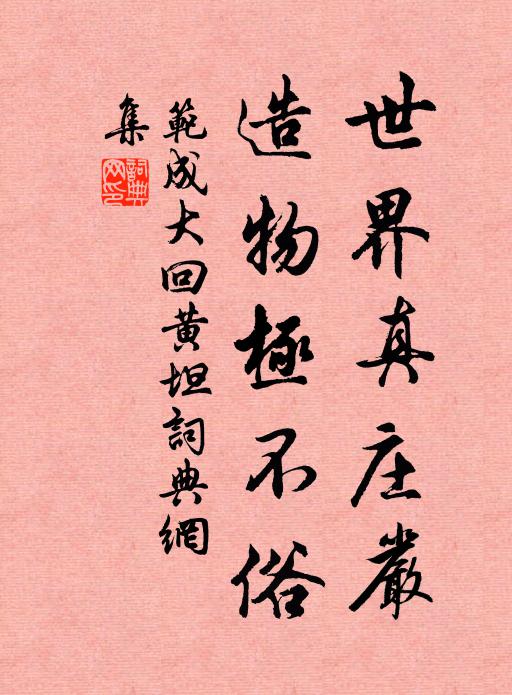 世界真庄嚴
造物極不俗
範成大回黄坦詞典網
集
詞典網印